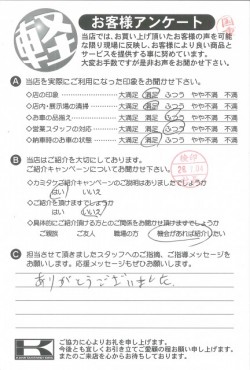 軽
お客様アンケート
当店では、お買い上げ頂いたお客様の声を可能
な限り現場に反映し、お客様により良い商品と
サービスを提供する事に努めています。
大変お手数ですが是非お声をお聞かせ下さい。
A 当店を実際にご利用になった印象をお聞かせ下さい。
◇店の印象 大満足 満足 ふつう やや不満 不満
◇店内・展示場の清掃 大満足 満足 ふつう やや不満 不満
◇お車の品揃え 大満足 満足 ふつう やや不満 不満
◇営業スタッフの対応 大満足 満足 ふつう やや不満 不満
◇納車時のお車の状態 大満足 満足 ふつう やや不満 不満
B 当店はご紹介を大切にしております。
ご紹介キャンペーンについてお聞かせ下さい。
◇カミタケご紹介キャンペーンのご説明はありましたでしょうか
はい いいえ
◇ご紹介を頂けますでしょうか
はい いいえ
◇具体的にご紹介頂ける方とのご関係をお聞かせ頂けますでしょうか
ご親戚 ご友人 職場の方 機会があれば紹介したい
C 担当させて頂きましたスタッフへのご指摘、ご指導メッセージを
お願いします。応援メッセージもぜひお願いします。
ありがとうございました。
K
ご協力に心よりお礼を申し上げます。
今後とも宜しくお引き立てご愛顧の程お願い申し上げます。
またのご来店を心からお待ちしております。